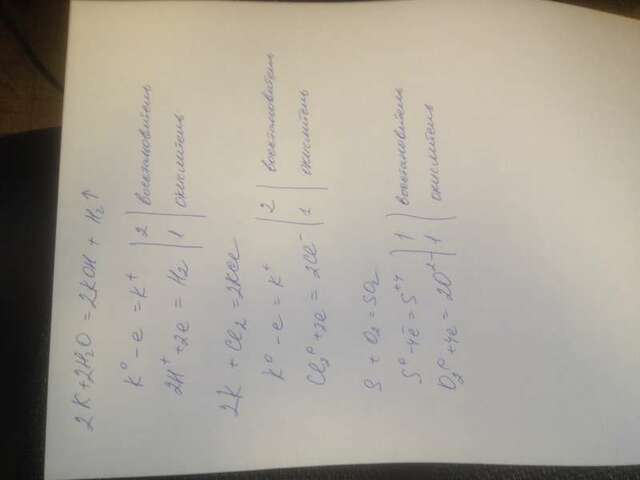 2K+2H₂O = 2KOH + H₂↑
K⁰ – e = K⁺ | 2 | восстановитель
2H⁺ +2e = H₂ | 1 | окислитель
2K + Cl₂ =2KCl
K⁰ – e = K⁺ | 2 | восстановитель
Cl₂⁰ +2e = 2Cl⁻ | 1 | окислитель
S + O₂ =SO₂
S⁰ -4ē = S⁺⁴ | 1 | восстановитель
O₂⁰ +4e = 2O²⁻ | 1 | окислитель